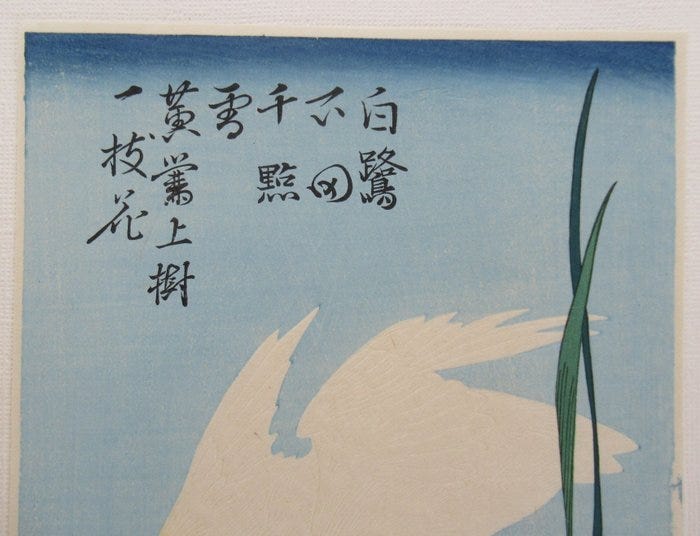 白鷺
下田
千點
雪
黄鶯上樹
一枝花